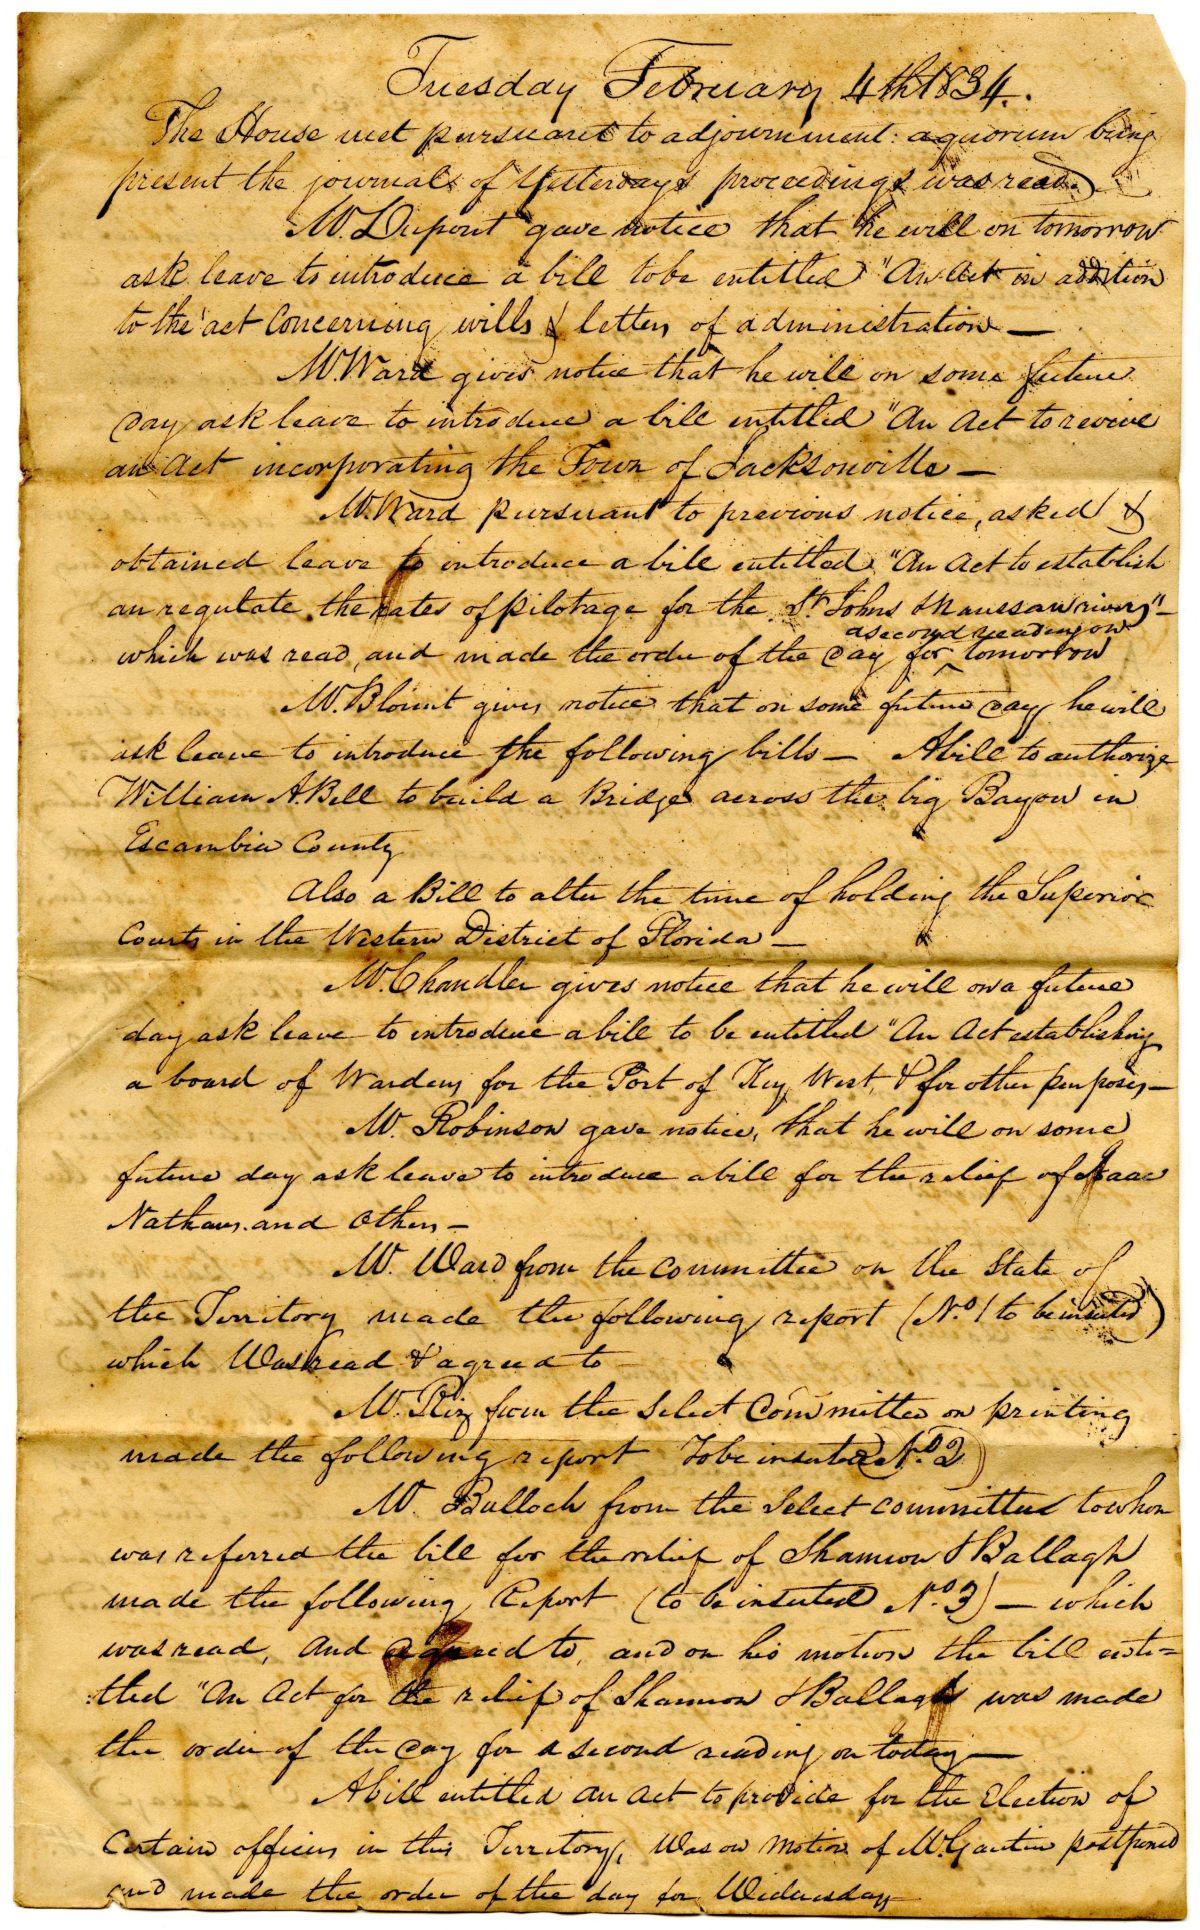 Tuesday February 4th 1834.
The House met pursuant to adjournment: a quorum being
present the journals of Yesterdays proceedings was read
Mr. Dupont gave notice that he will on tomorrow
ask leave to introduce a bill to be entitled "An Act in addition
to the act Concerning wills & letters of administration —
Mr. Ward gives notice that he will on some future
day ask leave to introduce a bill entitled "An Act to revive
an Act incorporating the Town of Jacksonville —
Mr. Ward pursuant to previous notice, asked &
obtained leave to introduce a bill entitled "An Act to establish
an regulate the rates of pilotage for the St. Johns & Naussau rivers" —
a second reading on
which was read, and made the order of the day for ^ tomorrow
Mr. Blount gives notice that on some future day he will
ask leave to introduce the following bills — A bill to authorize
William A. Bell to build a Bridge across the big Bayou in
Escambia County
Also a Bill to alter the time of holding the Superior
Courts in the Western District of Florida —
Mr. Chandler gives notice that he will on a future
day ask leave to introduce a bill to be entitled "An Act establishing
a board of Wardens for the Port of Key West, & for other purposes —
Mr. Robinson gave notice, that he will on some
future day ask leave to introduce a bill for the relief of Isaac
Nathans and others —
Mr. Ward from the committee on the State of
the Territory made the following report (No. 1 to be inserted)
which Was read & agreed to —
Mr. from the Select Committee on printing
made the following report To be inserted No. 2)
Mr. Bulloch from the Select committee to whom
was referred the bill for the relief of Shannon & Ballagh
made the following Report (to be inserted No. 3) — which
was read, and agreed to, and on his motion the bill enti=
tled "An Act for the relief of Shannon & Ballagh was made
the order of the day for a second reading on today —
A bill entitled An Act to provide for the Election of
Certain officers in this Territory, Was on Motion of Mr. Gautier postponed
and made the order of the day for Wednesday